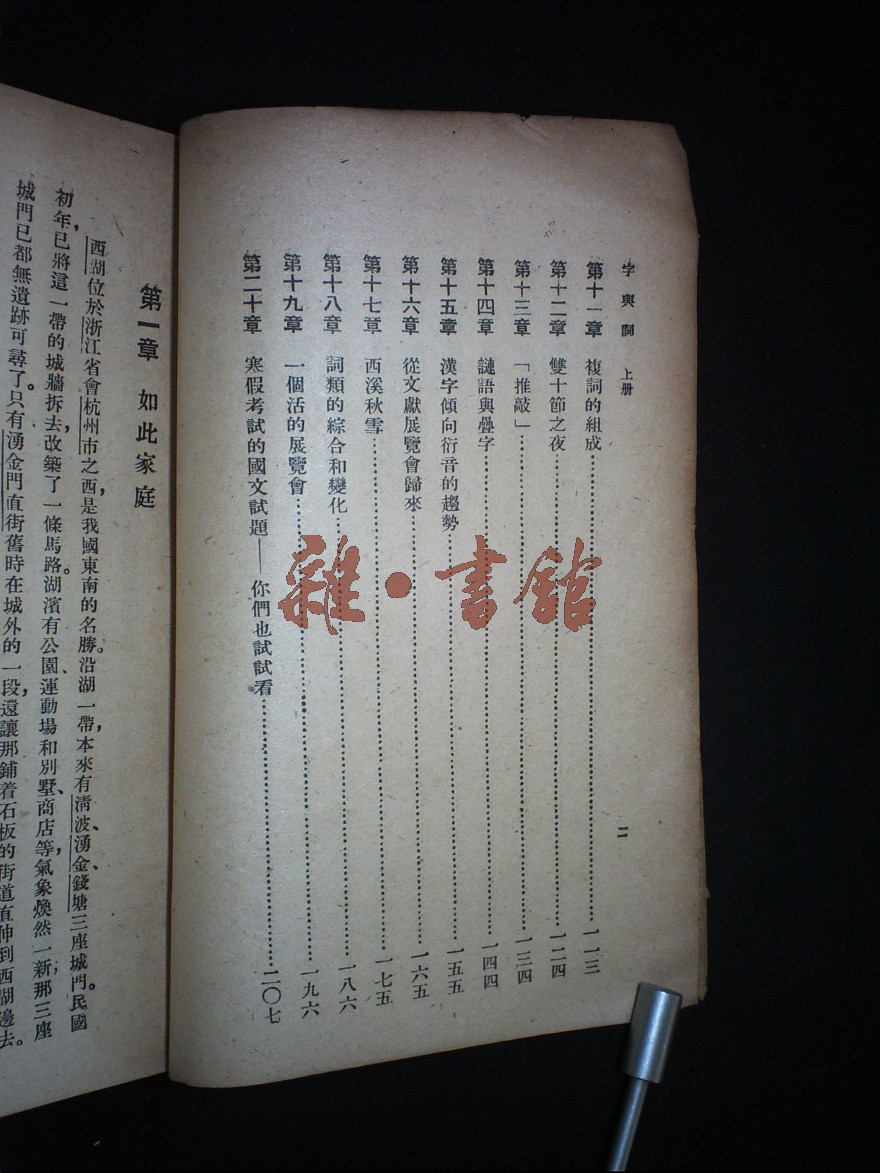 字與詞 上册
二
第十一章 複詞的組成……一一三
第十二章 雙十節之夜……一二四
第十三章 「推敲」……一三四
第十四章 謰語與疊字……一四四
第十五章 漢字傾向衍音的趨勢……一五五
第十六章 從文獻展覽會歸來……一六五
第十七章 西溪秋雪……一七五
第十八章 詞類的綜合和變化……一八六
第十九章 一個活的展覽會……一九六
第二十章 寒假考試的國文試題——你們也試試看……二〇七
雜·書館
第一章 如此家庭
西湖位於浙江省會杭州市之西,是我國東南的名勝。沿湖一帶,本來有清波、湧金、錢塘三座城門。民國
初年,已將這一帶的城牆拆去,改築了一條馬路。湖濱有公園、運動場和別墅、商店等,氣象煥然一新;那三座
城門已都無遺跡可尋了。只有湧金門直街舊時在城外的一段,還讓那鋪着石板的街道直伸到西湖邊去。